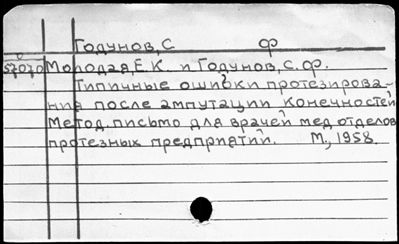 Годунов, С Ф
57070 Молодая, Е.К. и Годунов, С.Ф.
Типичные ошибки протезирова-
ния после ампутации конечностей
Метод. письмо для врачей мед отделов
протезных предприятий. М., 1958.